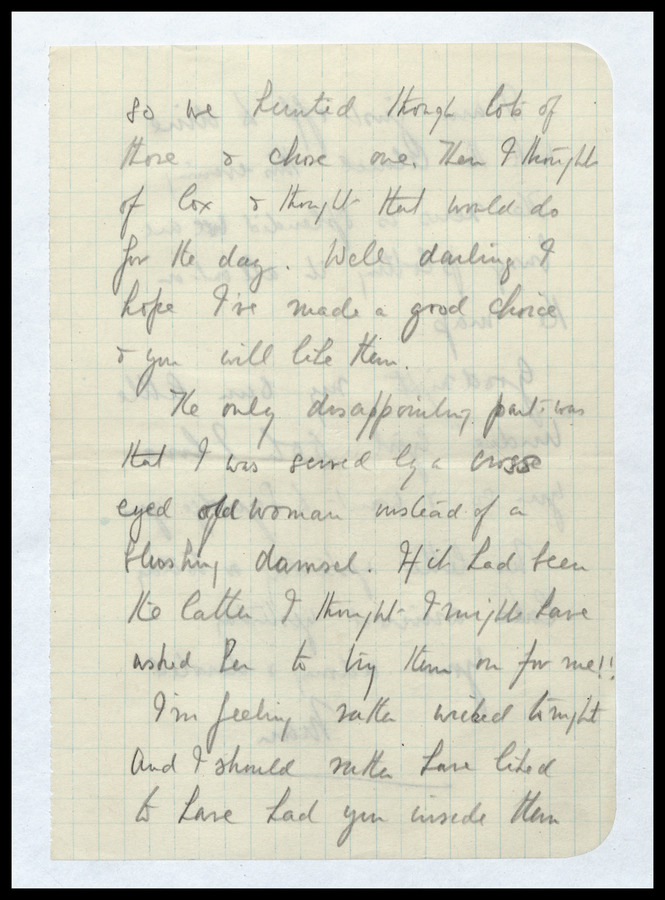 so we hunted though lots of
those & chose one. Then I thought
of Cox & thought that would do
for the day. Well darling I
hope I've made a good choice
& you will like them.
The only disappointing part was
that I was served by a cross
eyed old woman instead of a
blushing damsel. If it had been
the latter I thought I might have
asked her to try them on for me!!
I'm feeling rather wicked tonight
And I should rather have liked
to have had you inside them